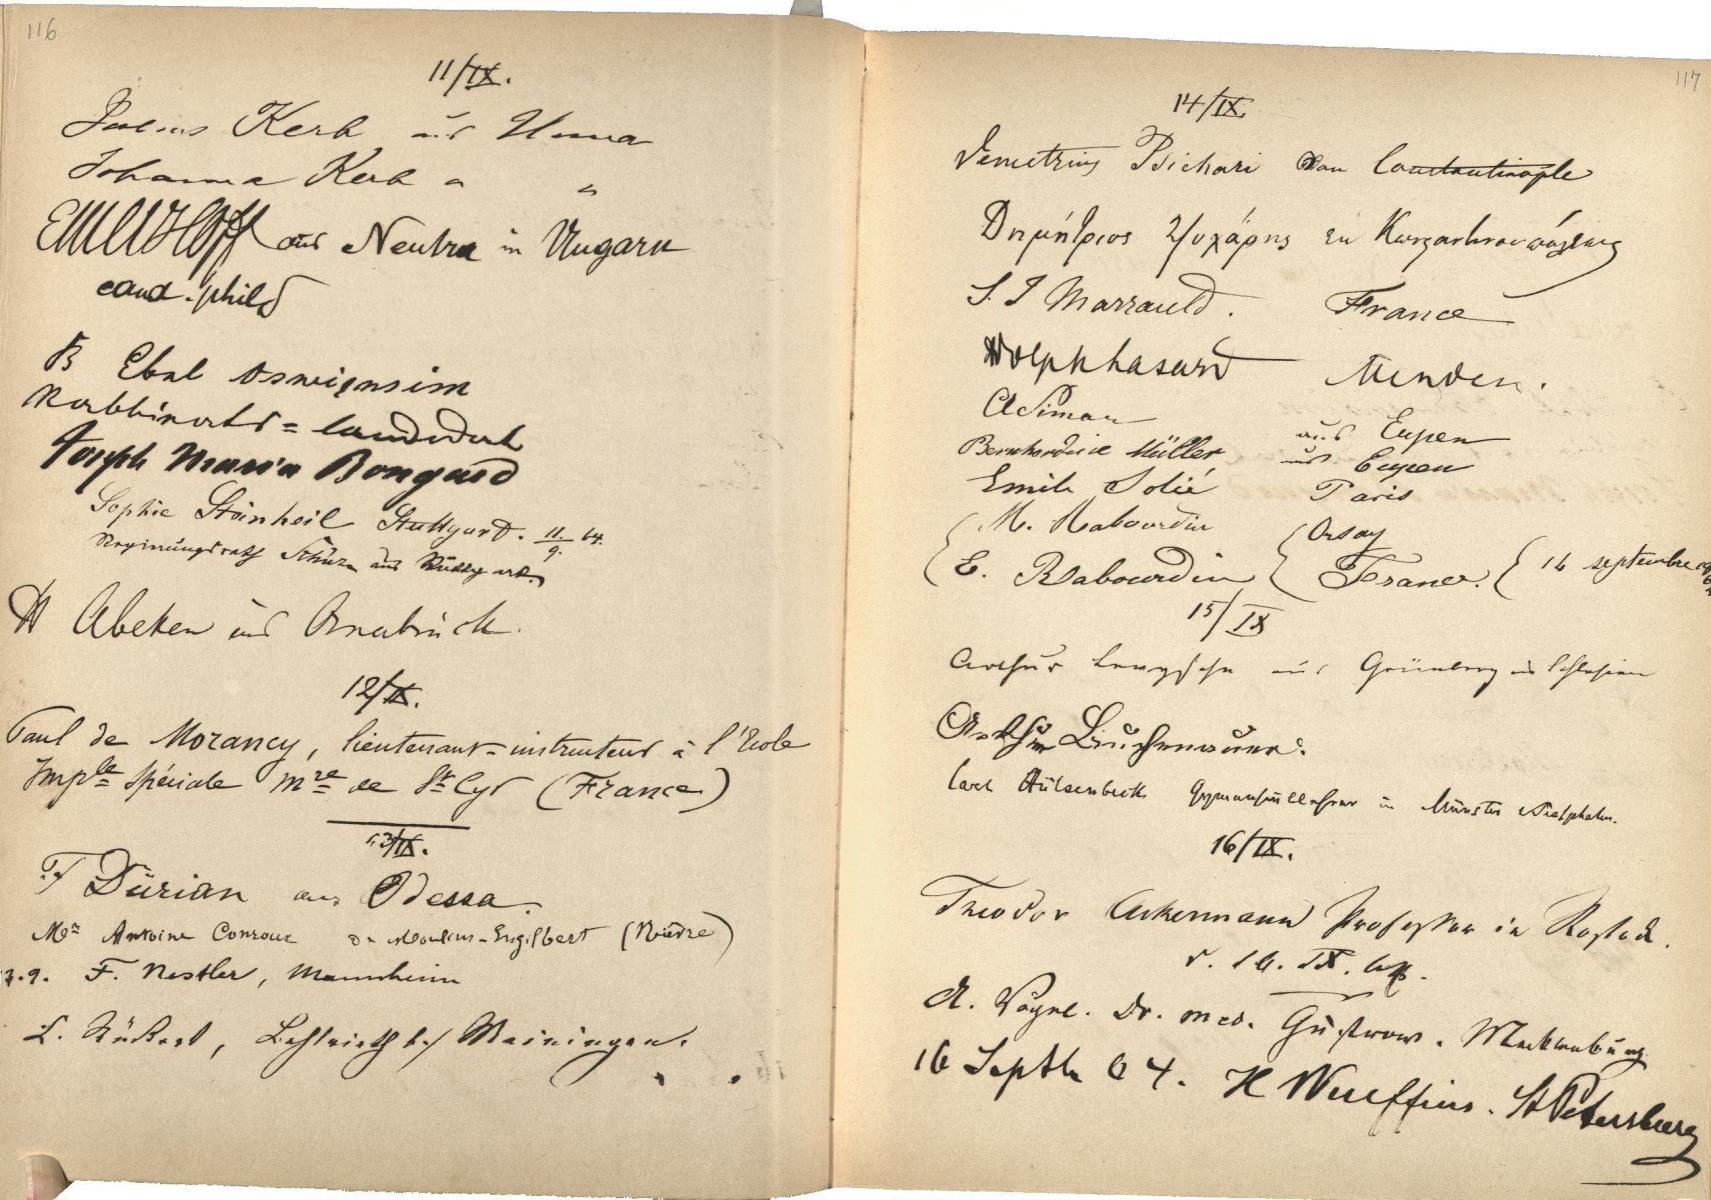 116
11/IX.
Julius Kerb aus Unna
Johanna Kerb " "
aus Neutra in Ungarn
cand. phil
B Ebel Oswięnsim
Rabbinats = Candidat
Joseph Maria Bongard
Sophie Steinheil Stuttgart. 11/9. 64.
Regierungsrath Schüz aus Stuttgart.
H Abeken aus Osnabrück.
12/IX.
Paul de Morancy, lieutenant-instructeur à l'Ecole
Imple Spéciale Mre de St Cyr (France)
13/IX.
F Dürian aus Odessa.
Mr Antoine Conroux de Moulins-Engilbert (Nièvre)
13.9. F. Nestler, Mannheim
L. Rückert, Meiningen.
117
14/IX.
Demetrius Psichari von Constantinople
Δημήτριος Ψυχάρης ἐκ Κωνσταντινουπόλεως
S. J Marrauld. France
Minden.
A Simon aus Eupen
Bernhardine Müller aus Eupen
Emile Solié Paris
M. Rabourdin Orsay
E. Rabourdin France. 14 septembre 1864
15/IX
Arthur aus Grünberg in Schlesien
Arthur
Carl Hülsenbeck Gymnasiallehrer in Münster Westphalen.
16/IX.
Theodor Ackermann Professor in Rostock.
d. 16. IX. 64.
A. Vogel. Dr. med. Güstrow. Mecklenburg
16 Septbr 64. H Wulffius. St Petersburg